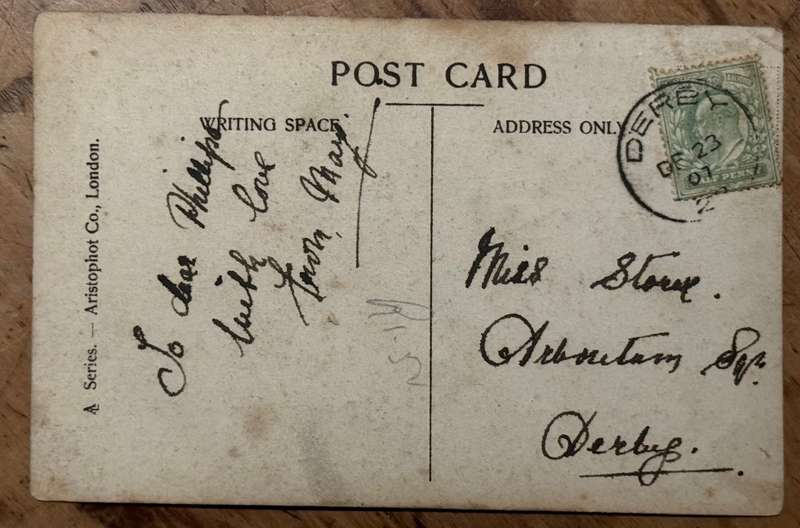 POST CARD
WRITING SPACE.
ADDRESS ONLY
To dear Phillips
with love
from May.
Miss Stone.
Arboretum Sqr.
Derby.
DERBY
DE 23
07
PENNY
A Series. — Aristophot Co., London.